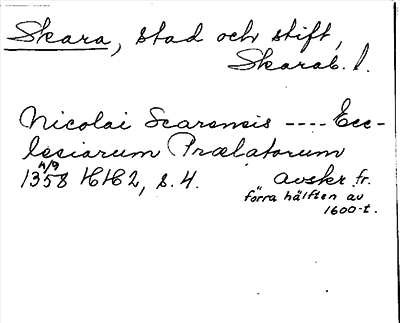 Skara, stad och stift,
Skarab. l.
Nicolai Scarensis ---- Ecc-
lesiarum Prælatorum
4/9
1358 HH2, s. 4. avskr. fr.
förra hälften av
1600-t.